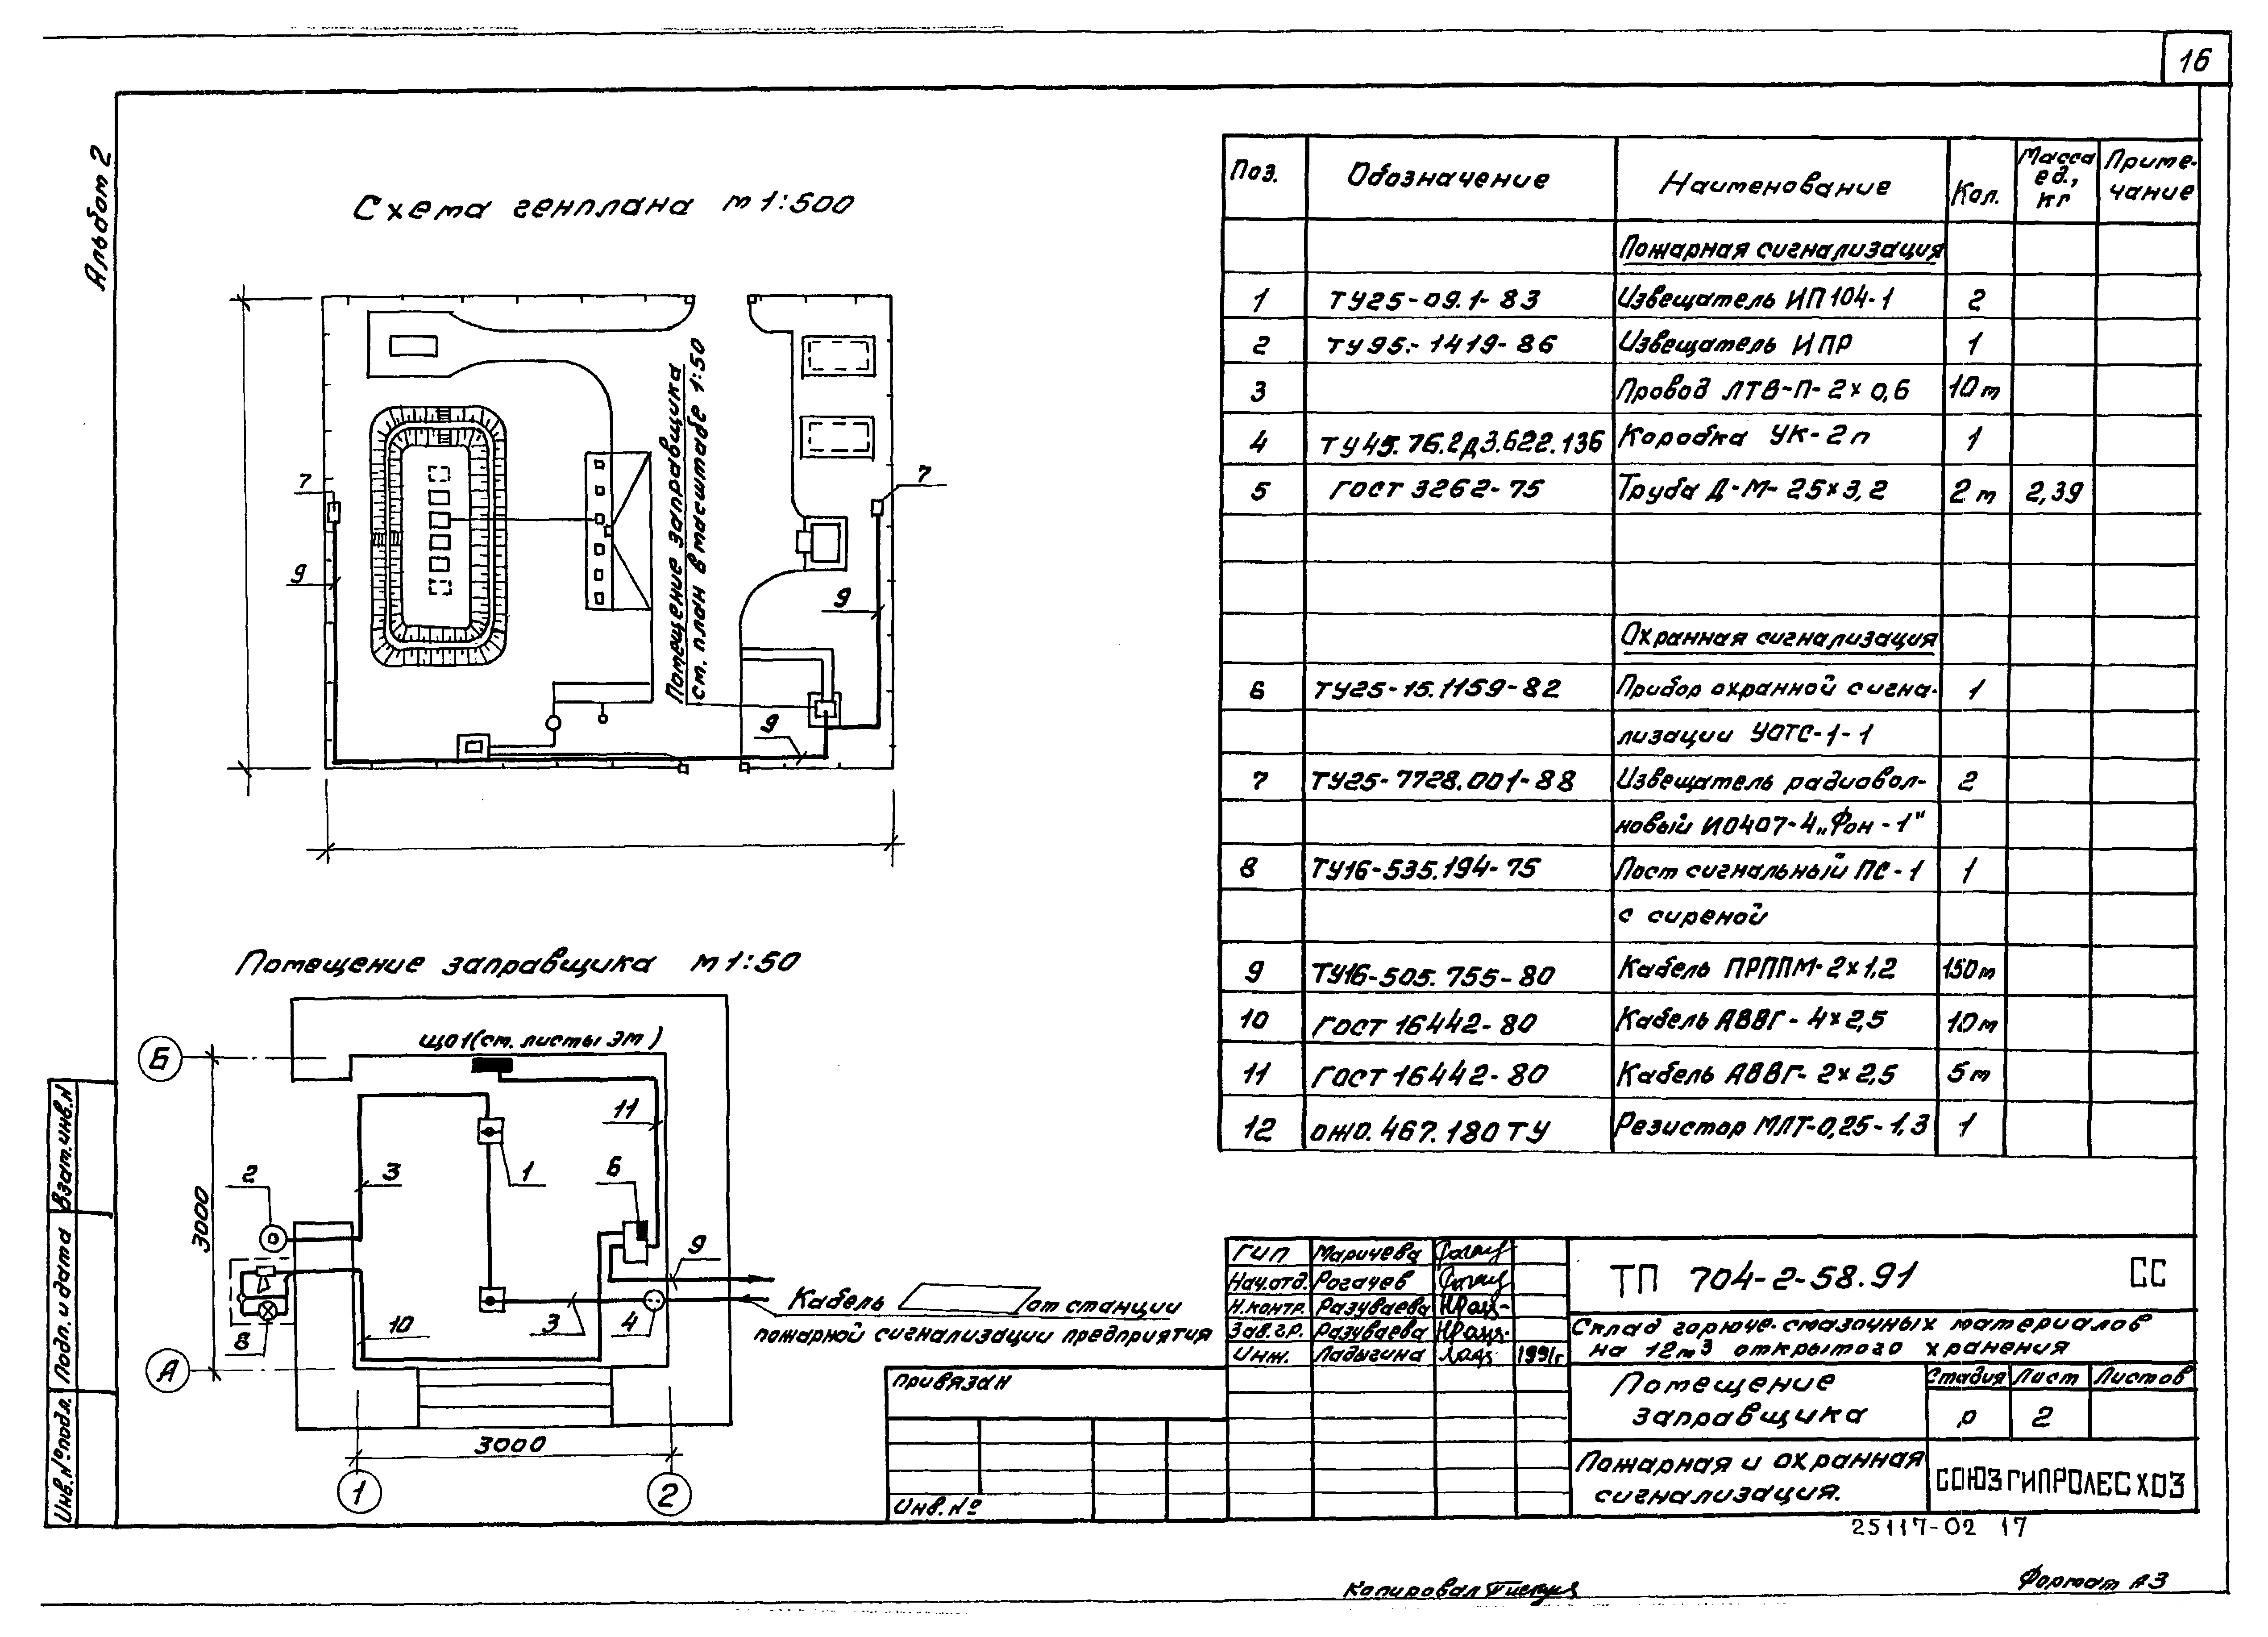 16
Альбом 2
Схема генплана м 1:500
Помещение заправщика
см. план в масштабе 1:50
7
7
9
9
9
Помещение заправщика м 1:50
ЩО1 (см. листы ЭМ)
Б
А
1
2
3000
3000
11
1
3
2
6
9
8
10
3
4
Кабель от станции
пожарной сигнализации предприятия
Поз. Обозначение Наименование Кол. Масса ед., кг Приме-чание
Пожарная сигнализация
1 ТУ25-09.1-83 Извещатель ИП 104-1 2
2 ТУ95.-1419-86 Извещатель ИПР 1
3 Провод ЛТВ-П-2×0,6 10м
4 ТУ45.76.2д3.622.136 Коробка УК-2п 1
5 ГОСТ 3262-75 Труба Д-М-25×3,2 2м 2,39
Охранная сигнализация
6 ТУ25-15.1159-82 Прибор охранной сигна- 1
лизации УОТС-1-1
7 ТУ25-7728.001-88 Извещатель радиовол- 2
новый ИО407-4 „Фон-1"
8 ТУ16-535.194-75 Пост сигнальный ПС-1 1
с сиреной
9 ТУ16-505.755-80 Кабель ПРППМ-2×1,2 150м
10 ГОСТ 16442-80 Кабель АВВГ-4×2,5 10м
11 ГОСТ 16442-80 Кабель АВВГ-2×2,5 5м
12 ОЖО.467.180ТУ Резистор МЛТ-0,25-1,3 1
ГИП Маричева
Нач.отд. Рогачев
Н.контр. Разуваева
Зав.гр. Разуваева
Инж. Ладыгина 1991г
ТП 704-2-58.91 СС
Склад горюче-смазочных материалов
на 12м³ открытого хранения
Помещение
заправщика
Стадия Лист Листов
Р 2
Пожарная и охранная
сигнализация.
СОЮЗГИПРОЛЕСХОЗ
Привязан
Инв.№
Взам.инв.№
Подп. и дата
Инв.№подл.
25117-02 17
Копировал
Формат А3